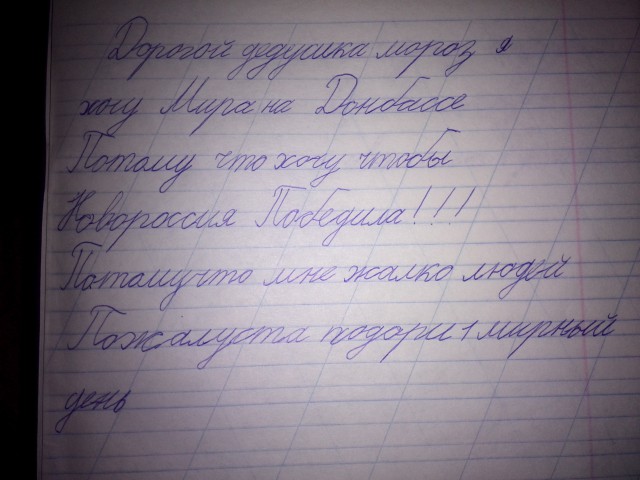 Дорогой дедушка мороз я
хочу Мира на Донбассе
Потому что хочу чтобы
Новороссия Победила!!!
Потомучто мне жалко людей
Пожалуста подари 1 мирный
день